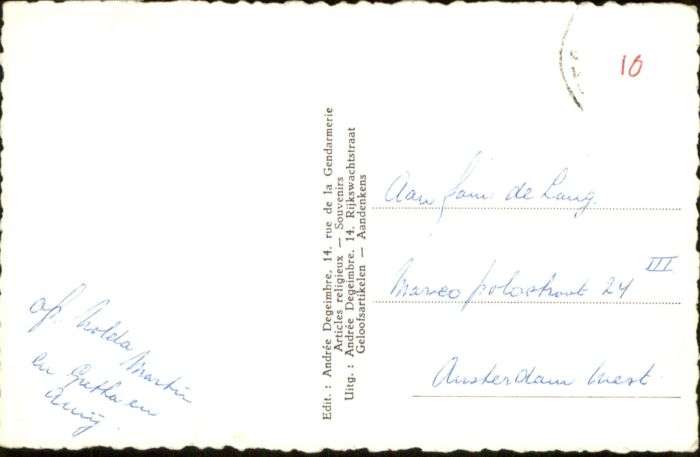 10
Edit. : Andrée Degeimbre, 14, rue de la Gendarmerie
Articles religieux — Souvenirs
Uitg. : Andrée Degeimbre, 14, Rijkswachtstraat
Geloofsartikelen — Aandenkens
Aan fam de Lang.
Marco polostraat 24 III
Amsterdam West.
Holda Martin
en Gretha en